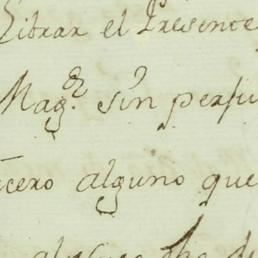 Librar el Presente
Mag.d sin perju
cero alguno que